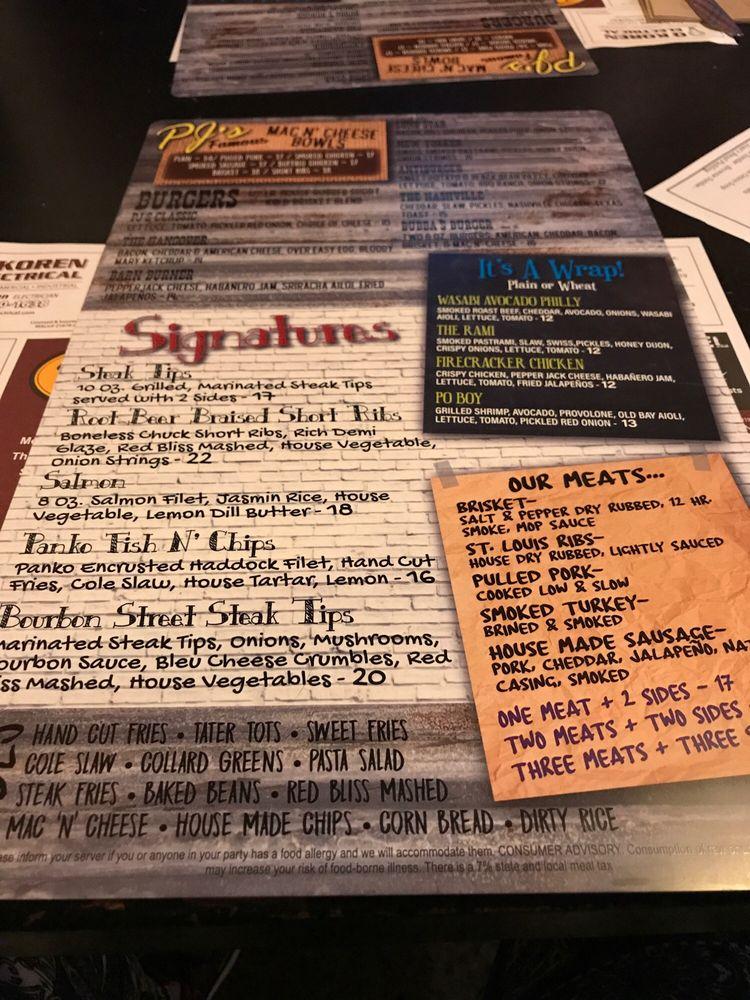 PJ's
Famous
MAC N' CHEESE
BOWLS
BURGERS
PJ'S CLASSIC
LETTUCE, TOMATO, PICKLED RED ONION, CHOICE OF CHEESE
THE HANGOVER
BACON, CHEDDAR & AMERICAN CHEESE, OVER EASY EGG, BLOODY
MARY KETCHUP - 14
BARN BURNER
PEPPERJACK CHEESE, HABANERO JAM, SRIRACHA AIOLI, FRIED
JALAPENOS - 14
THE NASHVILLE
BUBBA'S BURGER
It's A Wrap!
Plain or Wheat
WASABI AVOCADO PHILLY
SMOKED ROAST BEEF, CHEDDAR, AVOCADO, ONIONS, WASABI
AIOLI, LETTUCE, TOMATO - 12
THE RAMI
SMOKED PASTRAMI, SLAW, SWISS, PICKLES, HONEY DIJON,
CRISPY ONIONS, LETTUCE, TOMATO - 12
FIRECRACKER CHICKEN
CRISPY CHICKEN, PEPPER JACK CHEESE, HABAÑERO JAM,
LETTUCE, TOMATO, FRIED JALAPEÑOS - 12
PO BOY
GRILLED SHRIMP, AVOCADO, PROVOLONE, OLD BAY AIOLI,
LETTUCE, TOMATO, PICKLED RED ONION - 13
Signatures
Steak Tips
10 oz. Grilled, Marinated Steak Tips
served with 2 Sides - 17
Root Beer Braised Short Ribs
Boneless Chuck Short Ribs, Rich Demi
Glaze, Red Bliss Mashed, House Vegetable,
Onion Strings - 22
Salmon
8 oz. Salmon Filet, Jasmin Rice, House
Vegetable, Lemon Dill Butter - 18
Panko Fish N' Chips
Panko Encrusted Haddock Filet, Hand Cut
Fries, Cole Slaw, House Tartar, Lemon - 16
Bourbon Street Steak Tips
Marinated Steak Tips, Onions, Mushrooms,
ourbon Sauce, Bleu Cheese Crumbles, Red
iss Mashed, House Vegetables - 20
OUR MEATS...
BRISKET-
SALT & PEPPER DRY RUBBED, 12 HR.
SMOKE, MOP SAUCE
ST. LOUIS RIBS-
HOUSE DRY RUBBED, LIGHTLY SAUCED
PULLED PORK-
COOKED LOW & SLOW
SMOKED TURKEY-
BRINED & SMOKED
HOUSE MADE SAUSAGE-
PORK, CHEDDAR, JALAPEÑO, NAT
CASING, SMOKED
ONE MEAT + 2 SIDES - 17
TWO MEATS + TWO SIDES
THREE MEATS + THREE S
HAND CUT FRIES • TATER TOTS • SWEET FRIES
COLE SLAW • COLLARD GREENS • PASTA SALAD
STEAK FRIES • BAKED BEANS • RED BLISS MASHED
MAC 'N' CHEESE • HOUSE MADE CHIPS • CORN BREAD • DIRTY RICE
ase inform your server if you or anyone in your party has a food allergy and we will accommodate them. CONSUMER ADVISORY. Consumption of
may increase your risk of food-borne illness. There is a 7% state and local meal tax
KOREN
ECTRICAL